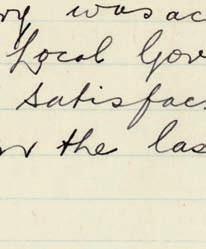 was ac
Local Gov
Satisfac
the las